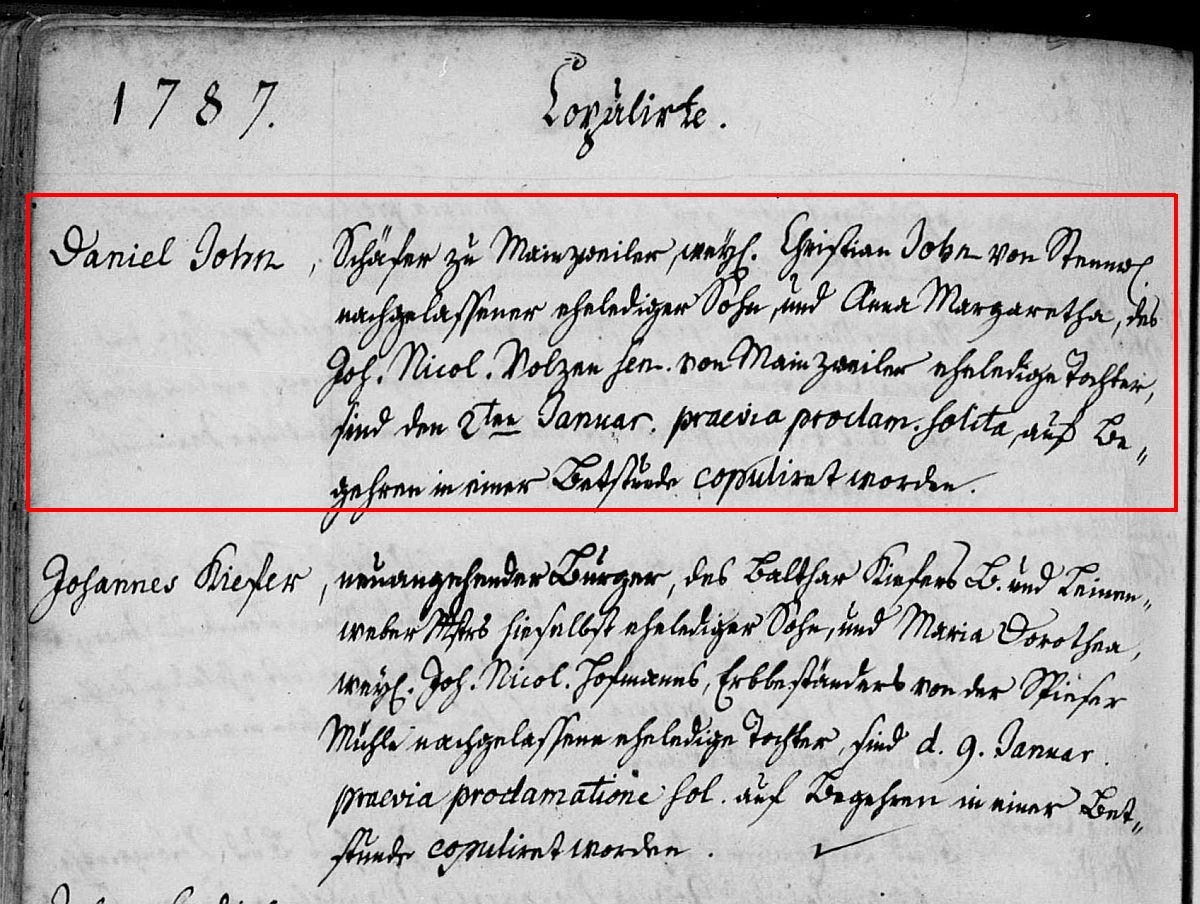 1787.
Copulirte.
Daniel John, Schäfer zu Mainzweiler, weyl. Christian John von Stennw.
nachgelassener ehelediger Sohn, und Anna Margaretha, des
Joh. Nicol. Volzen sen. von Mainzweiler eheledige Tochter,
sind den 2ten Januar. praevia proclam. solita, auf Be„
gehren in einer Betstunde copuliret worden.
Johannes Kiefer, neuangehender Bürger, des Balthar Kiefers B. und Leinen„
weber Mstrs hieselbst ehelediger Sohn, und Maria Dorothea,
weyl. Joh. Nicol. Hofmanns, Erbbeständers von der Spieser
Mühle nachgelassene eheledige Tochter, sind d. 9. Januar.
praevia proclamatione sol. auf Begehren in einer Bet„
stunde copuliret worden.